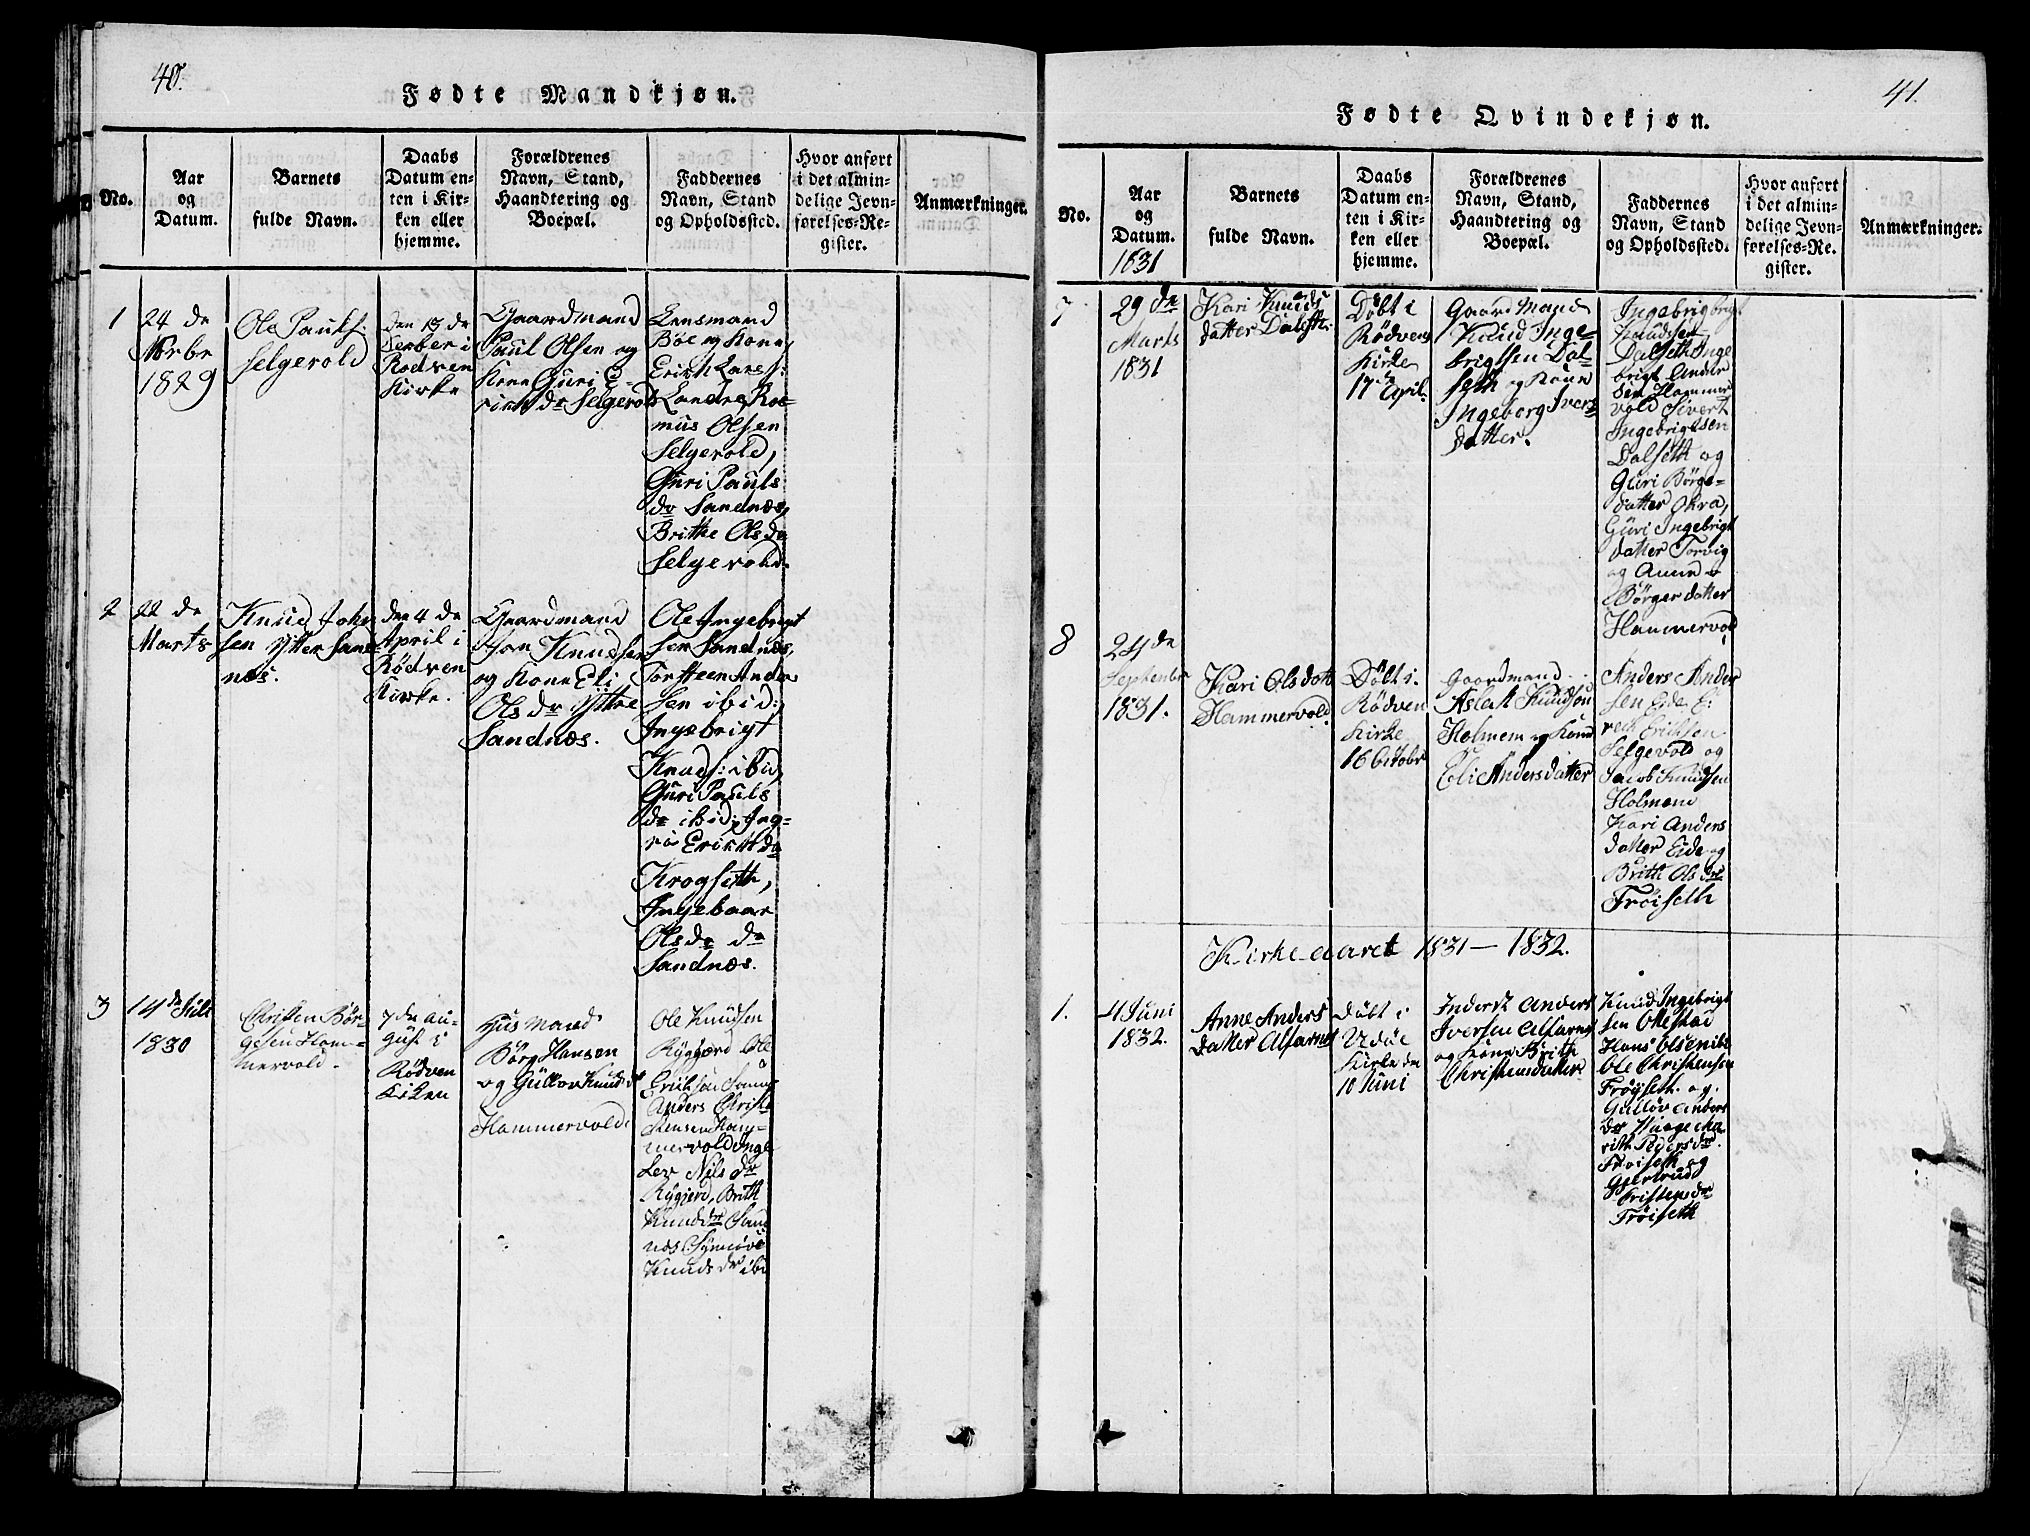 40.
Fødte Mandkjøn.
No.
Aar
og
Datum.
Barnets
fulde Navn.
Daabs
Datum en-
ten i Kir-
ken eller
hjemme.
Forældrenes
Navn, Stand,
Haandtering og
Boepæl.
Faddernes
Navn, Stand
og Opholdssted.
Hvor anført
i det almin-
delige Jevn-
førelses-Re-
gister.
Anmærkninger.
1
24 de
Novbr
1829
Ole Pauls.
Selgevold
den 13 de
Decber i
Rødven
Kirke
Gaardmand
Paul Olsen og
Kone Guri E-
richs dr Selgevold
Lensmand
Böe og Kone,
Erich Lars:
Landre, Ras-
mus Olsen
Selgevold,
Guri Pauls
dr Sandnæs,
Britthe Ols dr
Selgevold.
2
22 de
Marts
Knud John
sen Ytter Sand-
næs.
den 4 de
April i
Rødven
Kirke.
Gaardmand
Jon Knudsen
og Kone Eli
Ols dr Yttre
Sandnæs.
Ole Ingebrigt
sen Sandnæs,
Torsteen Anders
sen ibid:
Ingebrigt
Knuds: ibid,
Guri Pauls
dr ibid: Ing-
ri Erichs dr
Krogseth,
Ingebaar
Ols dr
Sandnæs.
3
14 de Juli
1830
Christen Bör-
gesen Ham-
mervold.
7 de Au-
gust i
Rødven
Kirken
Huusmand
Börg Hansen
og Gullov Knuds dr
Hammervold
Ole Knudsen
Rygjerd Ole
Erichsen
Anders Christ-
ensen Ham-
mervold Inge
Lev Nils dr
Rygjerd, Brith
Knuds dr Sand
næs Synnöve
Knuds dr ibi
41.
Fødte Qvindekjøn.
No.
Aar
og
Datum.
1831
Barnets
fulde Navn.
Daabs
Datum en-
ten i Kir-
ken eller
hjemme.
Forældrenes
Navn, Stand,
Haandtering og
Boepæl.
Faddernes
Navn, Stand
og Opholdssted.
Hvor anført
i det almin-
delige Jevn-
førelses-Re-
gister.
Anmærkninger.
7
29 de
Marts
1831
Kari Knuds
datter Dalseth
Döbt i
Rödvens
Kirke
17 April.
Gaard Mand
Knud Inge-
brigtsen Dal-
seth og Kone
Ingeborg Ivers
datter.
Ingebrigt
Knudsen
Dalseth Inge
brigt Ander
sen Hammer
vold Sivert
Ingebrigtsen
Dalseth og
Guri Börge-
datter Okra,
Guri Ingebrigt
datter Torvig
og Anne
Börger datter
Hammervold
8
24 de
September
1831.
Kari Olsdatt
Hammervold
Döbt i
Rödven
Kirke
16 October
Gaardmand
Aslak Knudson
Holmem og Kone
Eli Andersdatter
Anders Ander
sen Eide E:
rich Erichsen
Selgevold og
Jacob Knudsen
Holmem
Kari Anders
datter Eide og
Brith Ols dr
Tröiseth
Kirkeaaret 1831 — 1832.
1.
4 Juni
1832.
Anne Anders
datter Alfarnes
Döbt i
Vedöe
Kirke den
10 Juni
Inderst Anders
Iversen Alfarnes
og Kone Brith
Christensdatter
Knud Ingebrigt
sen Ollestad
Hans Olsen ibid
Ole Christensen
Tröyseth og
Gullöv Anders
dr Hauge Ma
rith Peders dr
Tröiseth og
Gjertrud
Cristens dr
Tröiseth